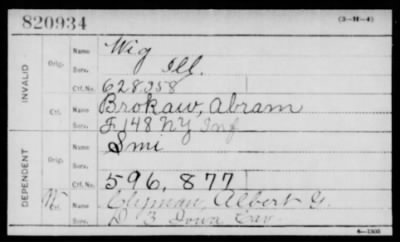 820934 (3-M-4)
INVALID
Orig. Name Wig
Serv. Ill.
Ctf. No. 628358
Ctf. Name Brokaw, Abram
Serv. F 148 N.Y. Inf
DEPENDENT
Orig. Name Smi
Serv.
Ctf. No. 596,877
Ctf. Name Clyman, Albert G.
Serv. D 3 Iowa Cav.